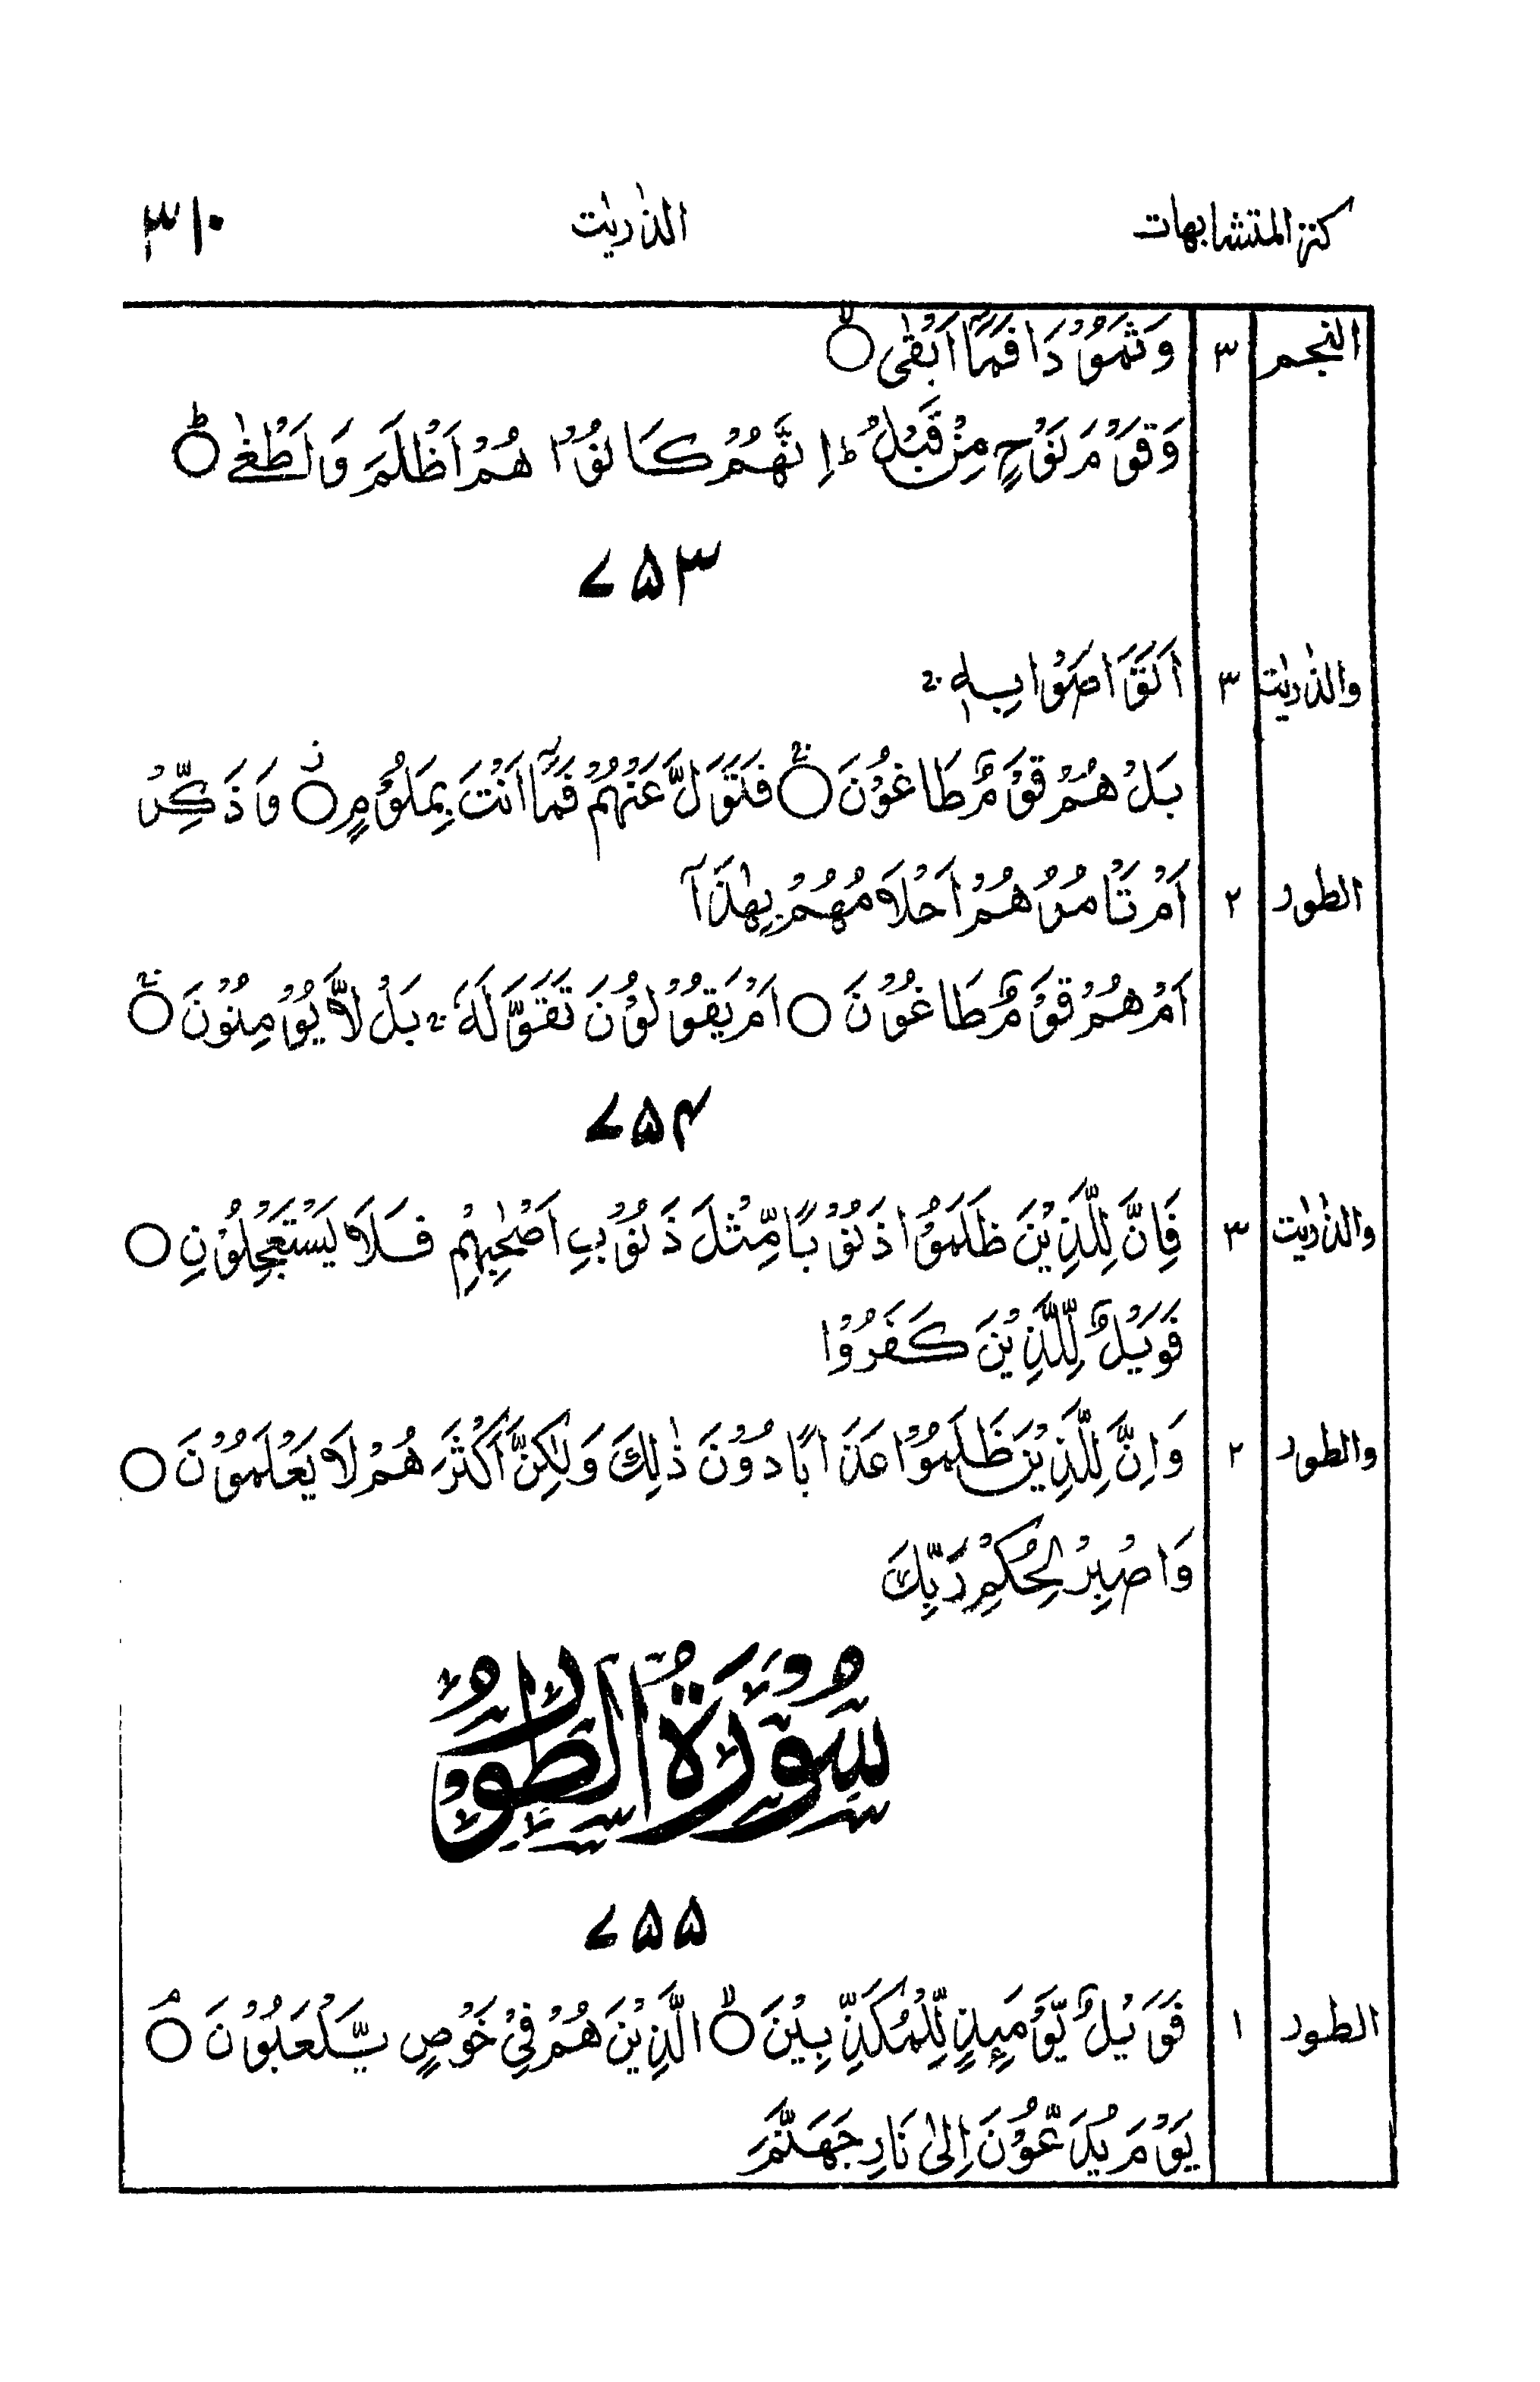 كنز المتشابهات الذٰريٰت ٣١٠
النجم ٣ وَثَمُوْدَا۟ فَمَآ اَبْقٰى ○ۙ
وَقَوْمَ نُوْحٍ مِّنْ قَبْلُ ؕ اِنَّهُمْ كَانُوْا هُمْ اَظْلَمَ وَاَطْغٰى ○ؕ
۷۵۳
والذٰريٰت ٣ اَتَوَاصَوْا بِهٖ ۚ
بَلْ هُمْ قَوْمٌ طَاغُوْنَ ○ۚ فَتَوَلَّ عَنْهُمْ فَمَآ اَنْتَ بِمَلُوْمٍ ○ؗ وَذَكِّرْ
الطور ٢ اَمْ تَاْمُرُهُمْ اَحْلَامُهُمْ بِهٰذَآ
اَمْ هُمْ قَوْمٌ طَاغُوْنَ ○ اَمْ يَقُوْلُوْنَ تَقَوَّلَهٗ ۚ بَلْ لَّا يُؤْمِنُوْنَ ○ۚ
۷۵۴
والذٰريٰت ٣ فَاِنَّ لِلَّذِيْنَ ظَلَمُوْا ذَنُوْبًا مِّثْلَ ذَنُوْبِ اَصْحٰبِهِمْ فَلَا يَسْتَعْجِلُوْنِ ○
فَوَيْلٌ لِّلَّذِيْنَ كَفَرُوْا
والطور ٢ وَاِنَّ لِلَّذِيْنَ ظَلَمُوْا عَذَابًا دُوْنَ ذٰلِكَ وَلٰكِنَّ اَكْثَرَهُمْ لَا يَعْلَمُوْنَ ○
وَاصْبِرْ لِحُكْمِ رَبِّكَ
سُوْرَةُ الطُّوْرِ
۷۵۵
الطور ١ فَوَيْلٌ يَّوْمَئِذٍ لِّلْمُكَذِّبِيْنَ ○ۙ الَّذِيْنَ هُمْ فِيْ خَوْضٍ يَّلْعَبُوْنَ ○ۘ
يَوْمَ يُدَعُّوْنَ اِلٰى نَارِ جَهَنَّمَ